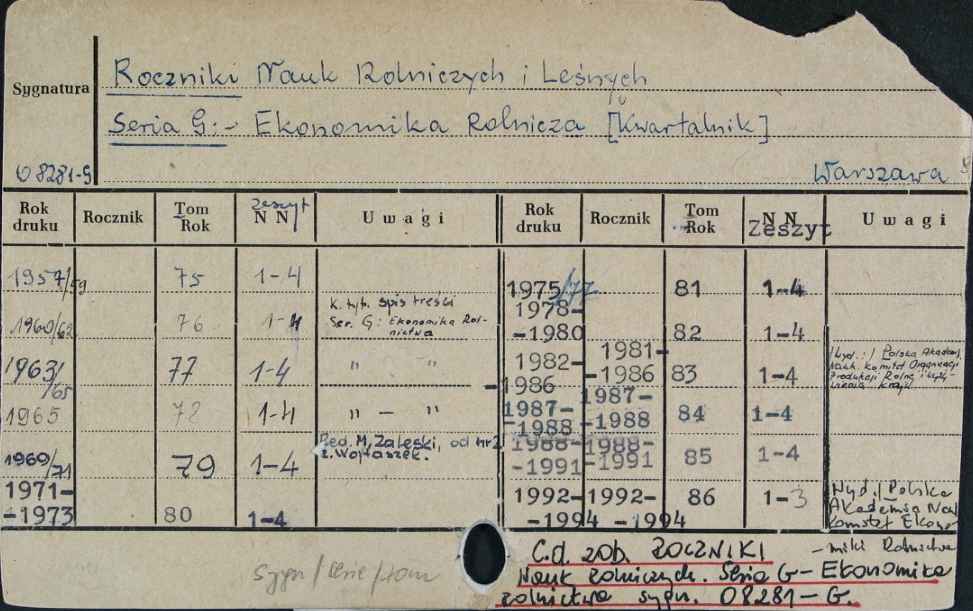 Sygnatura
Roczniki Nauk Rolniczych i Leśnych
Seria G:- Ekonomika Rolnicza [Kwartalnik]
08281-G
Warszawa
Rok druku Rocznik Tom Rok Zeszyt N N Uwagi Rok druku Rocznik Tom Rok N N Zeszyt Uwagi
1957/59 75 1-4
1975/77 81 1-4
1960/62 76 1-4 K. tyt. spis treści
Ser. G: Ekonomika Rol-
nictwa
1978-
-1980 82 1-4
1963/65 77 1-4 " "
1982-
-1986 1981-
-1986 83 1-4 Wyd.: Polska Akadem.
Nauk. Komitet Organizacji
Produkcji Roln. i
Kraju
1965 78 1-4 " - "
1987-
-1988 1987-
-1988 84 1-4
1969/71 79 1-4 Red. M. Zaleski, od nr 2
z. Wojtaszek.
1988-
-1991 1988-
-1991 85 1-4
1971-
-1973 80 1-4
1992-
-1994 1992-
-1994 86 1-3 Wyd. Polska
Akademia Nauk
Komitet Ekono-
-miki Rolnictwa
sygn/serie/tom
C.d. zob. ROCZNIKI
Nauk rolniczych. Seria G - Ekonomika
rolnictwa sygn. 08281-G.